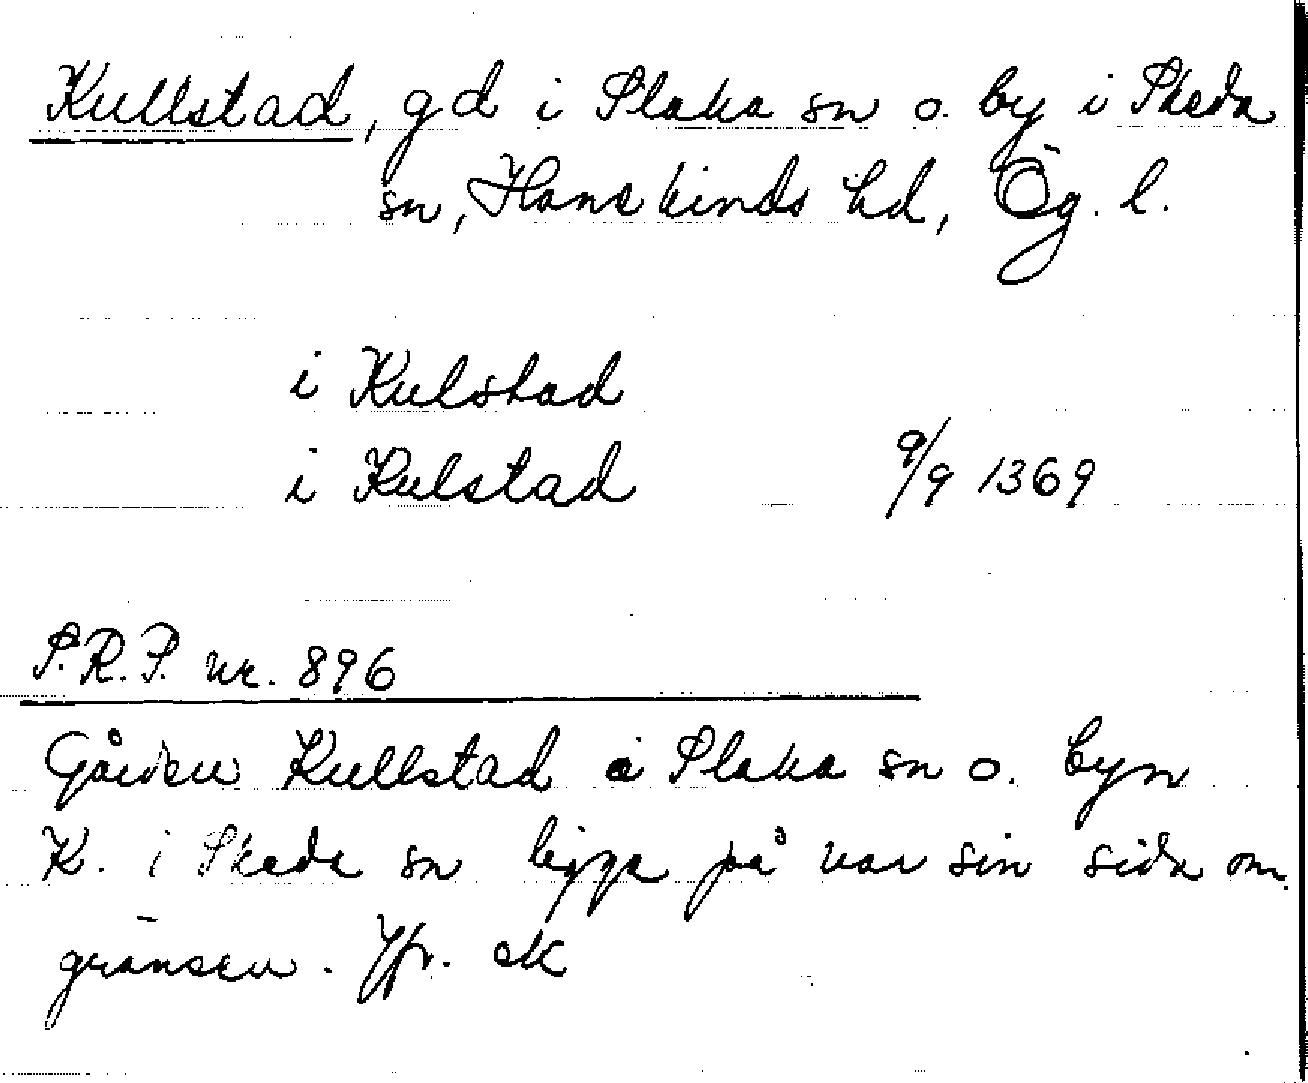 Kullstad, gd i Slaka sn o. by i Skeda
sn, Hanekinds hd, Ög. l.
i Kulstad
i Kulstad 9/9 1369
S.R.P. nr. 896
Gården Kullstad i Slaka sn o. byn
K. i Skeda sn ligga på var sin sida om
gränsen. Jfr. ek